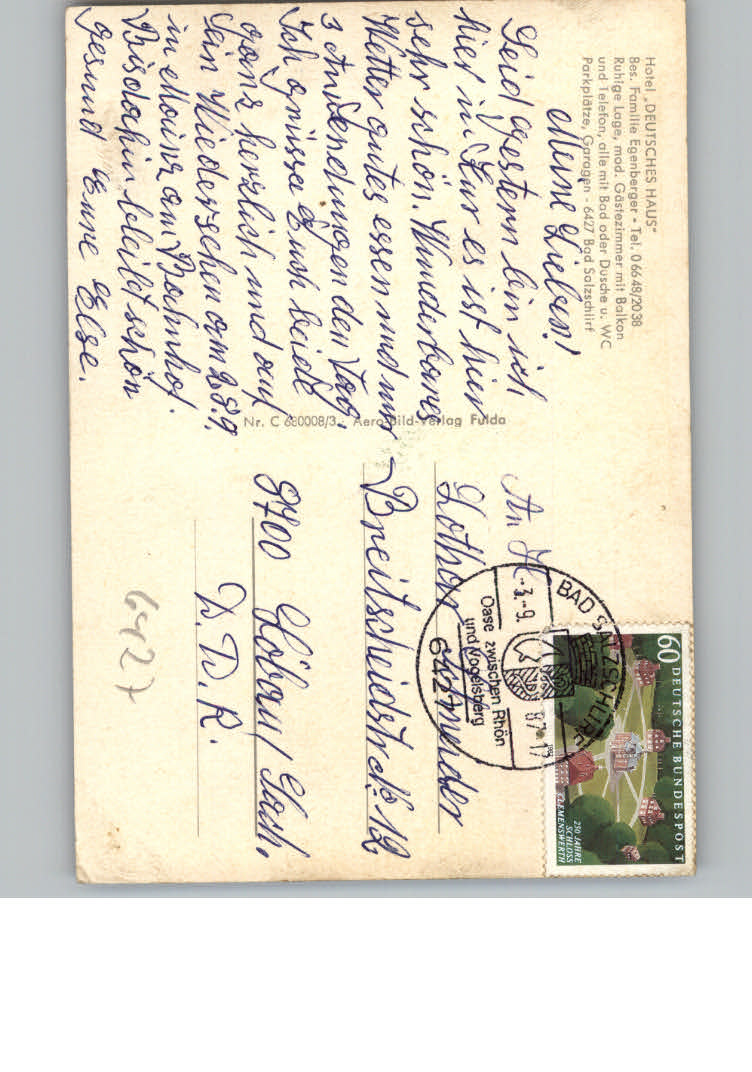 Hotel „DEUTSCHES HAUS"
Bes. Familie Egenberger - Tel. 0 66 48/20 38
Ruhige Lage, mod. Gästezimmer mit Balkon
und Telefon, alle mit Bad oder Dusche u. WC
Parkplätze, Garagen - 6427 Bad Salzschlirf
Meine Lieben!
Seid gestern bin ich
hier in Kur es ist hier
sehr schön. Wunderbares
Wetter gutes essen und nur
3 Anwendungen den Tag.
Ich grüsse Euch beide
ganz herzlich und auf
ein Wiedersehen am 28.9.
in Mainz am Bahnhof.
Bis dahin bleibt schön
gesund Eure Else.
Nr. C 680008/3 - Aero-Bild-Verlag Fulda
An
Lothar
Breitscheidstr. No 12
8700 Löbau/Sach.
D.D.R.
6427
BAD SALZSCHLIRF
-3.-9. 87-17
Oase zwischen Rhön
und Vogelsberg
6427
60 DEUTSCHE BUNDESPOST
250 JAHRE
SCHLOSS
CLEMENSWERTH